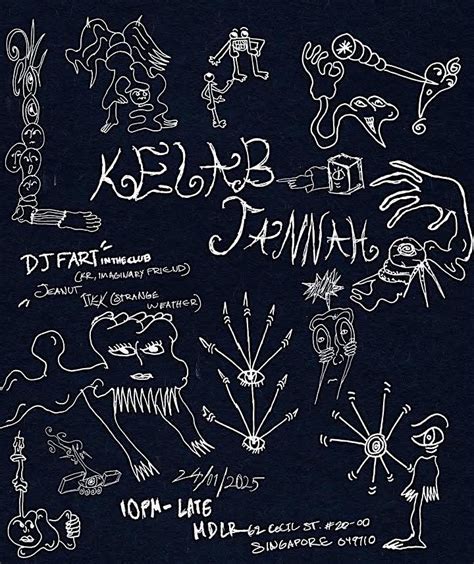 KELAB
JANNAH
DJ FART IN THE CLUB
(KR, IMAGINARY FRIEND)
JEANUT
ITKK (STRANGE
WEATHER)
24/01/2025
10PM - LATE
MDLR - 62 CECIL ST. #20-00
SINGAPORE 049710